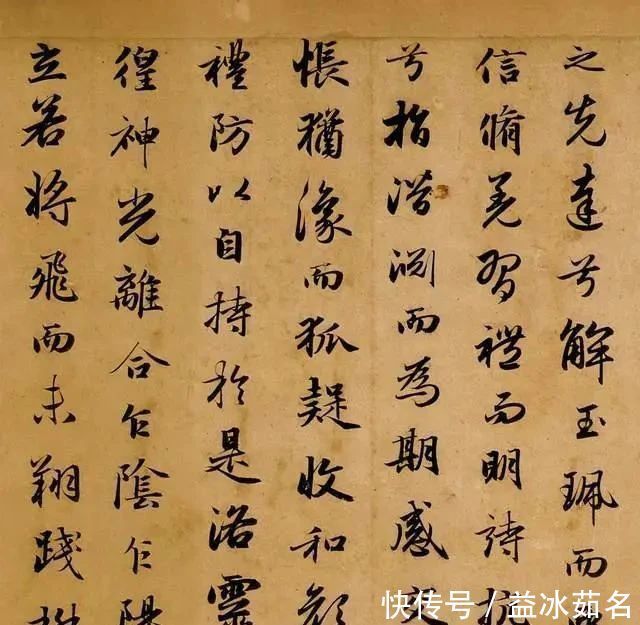 之先達兮解玉珮而
信脩羌習禮而明詩抗
兮指潛淵而為期感
悵猶豫而狐疑收和顏
禮防以自持於是洛靈
徨神光離合乍陰乍陽
立若將飛而未翔踐椒
快传号/益冰茹名